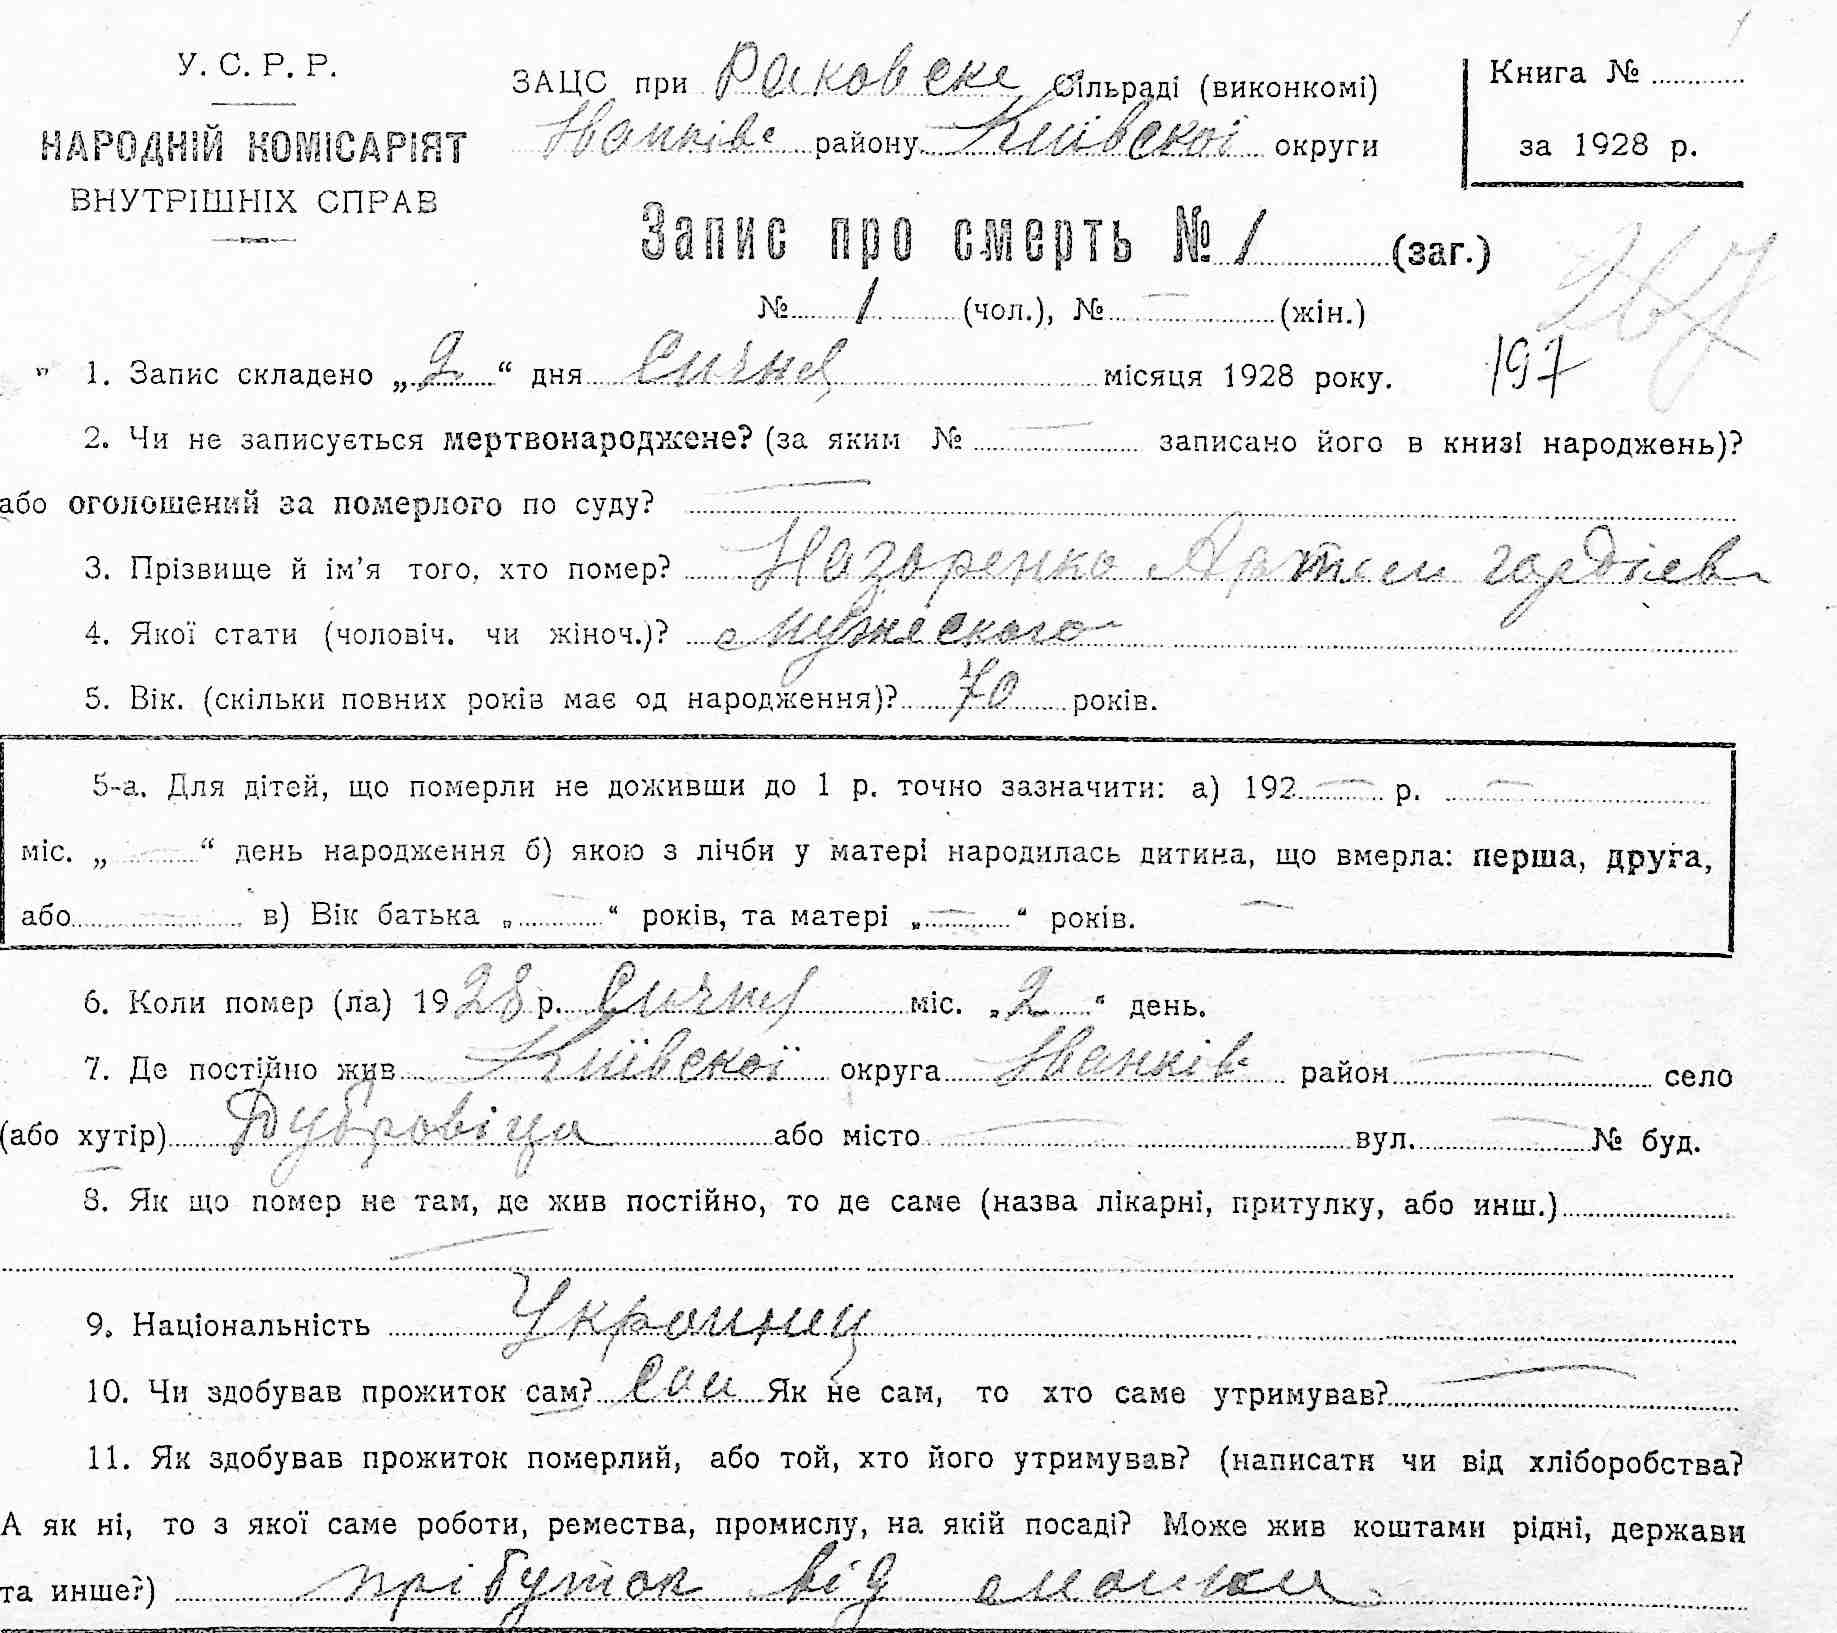 У. С. Р. Р.
НАРОДНІЙ КОМІСАРІЯТ
ВНУТРІШНІХ СПРАВ
ЗАЦС при Раковске сільраді (виконкомі)
Іванківс району Київскої округи
Книга №
за 1928 р.
Запис про смерть № 1 (заг.)
№ 1 (чол.), № — (жін.)
1. Запис складено „2“ дня Сичня місяця 1928 року. 197
2. Чи не записується мертвонароджене? (за яким № — записано його в книзі народжень)?
або оголошений за померлого по суду? —
3. Прізвище й ім'я того, хто помер? Назаренко Артем гордієв
4. Якої стати (чоловіч. чи жіноч.)? мужеского
5. Вік. (скільки повних років має од народження)? 70 років.
5-а. Для дітей, що померли не доживши до 1 р. точно зазначити: а) 192 — р. —
міс. „ — “ день народження б) якою з лічби у матері народилась дитина, що вмерла: перша, друга,
або — в) Вік батька „ — “ років, та матері „ — “ років. —
6. Коли помер (ла) 1928 р. Сичня міс. „2“ день.
7. Де постійно жив Київскої округа Іванків район — село
(або хутір) Дубровіца або місто — вул. — № буд.
8. Як що помер не там, де жив постійно, то де саме (назва лікарні, притулку, або инш.)
—
9. Національність Украинец
10. Чи здобував прожиток сам? сам Як не сам, то хто саме утримував? —
11. Як здобував прожиток померлий, або той, хто його утримував? (написати чи від хліборобства?
А як ні, то з якої саме роботи, ремества, промислу, на якій посаді? Може жив коштами рідні, держави
та инше?) прібуток від